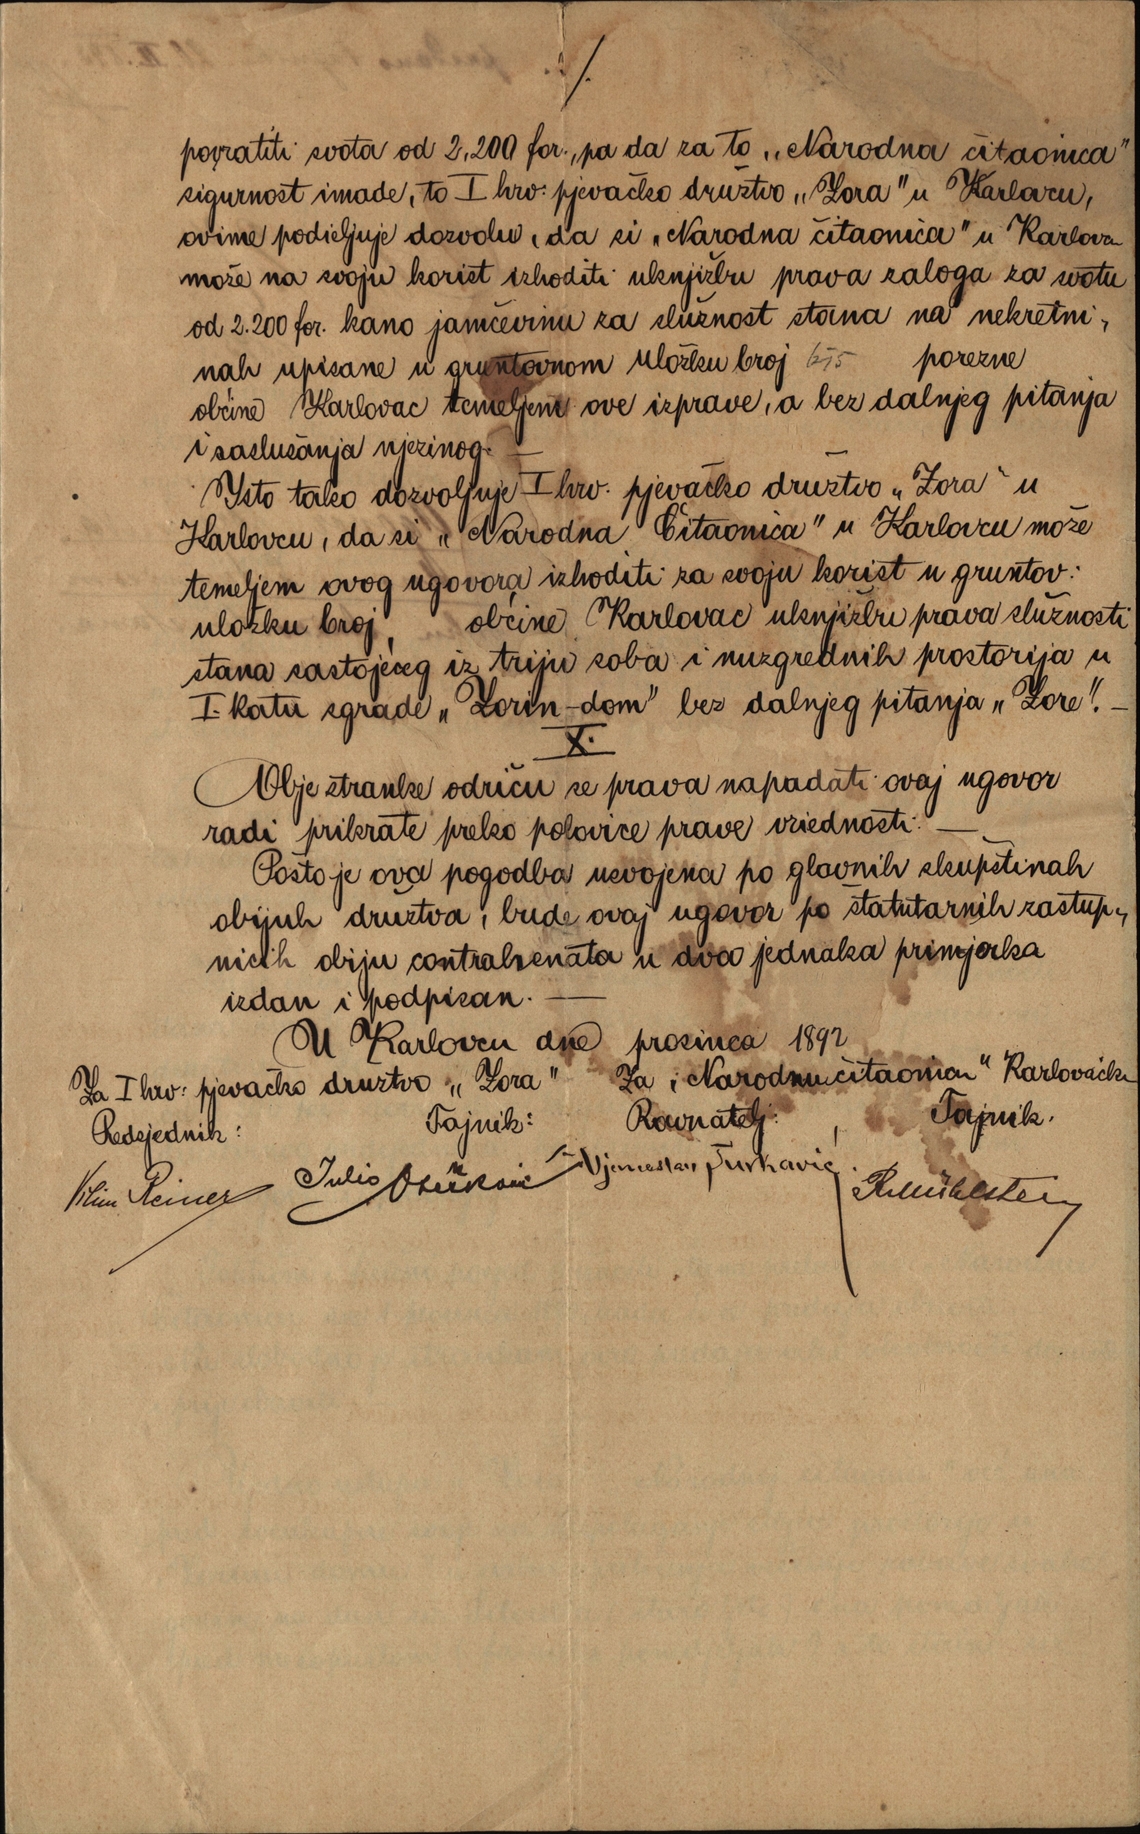 povratiti svota od 2,200 for., pa da za to „Narodna čitaonica"
sigurnost imade, to I hrv: pjevačko družtvo „Zora" u Karlovcu,
ovime podieljuje dozvolu, da si „Narodna čitaonica" u Karlovcu
može na svoju korist izhoditi uknjižbu prava zaloga za svotu
od 2.200 for. kano jamčevinu za služnost stana na nekretni,
nah upisane u gruntovnom uložku broj 655 porezne
občine Karlovac temeljem ove izprave, a bez dalnjeg pitanja
i saslušanja njezinog. —
Isto tako dozvoljuje I hrv. pjevačko družtvo „Zora" u
Karlovcu, da si „Narodna Čitaonica" u Karlovcu može
temeljem ovog ugovora izhoditi za svoju korist u gruntov:
uložku broj, občine Karlovac uknjižbu prava služnosti
stana sastojećeg iz triju soba i nuzgrednih prostorija u
I. katu zgrade „Zorin-dom" bez dalnjeg pitanja „Zore". —
X.
Obje stranke odriču se prava napadati ovaj ugovor
radi prikrate preko polovice prave vriednosti. —
Pošto je ova pogodba usvojena po glavnih skupštinah
obijuh družtva, bude ovaj ugovor po štatutarnih zastup,
nicih obiju contrahenata u dva jednaka primjerka
izdan i podpisan. —
U Karlovcu dne prosinca 1892
Za I hrv: pjevačko družtvo „Zora" Za „Narodnu čitaonicu" Karlovačku
Predsjednik: Tajnik: Ravnatelj: Tajnik.
Vilim Reiner Julio Vjenceslav Turkavić Mühlstein